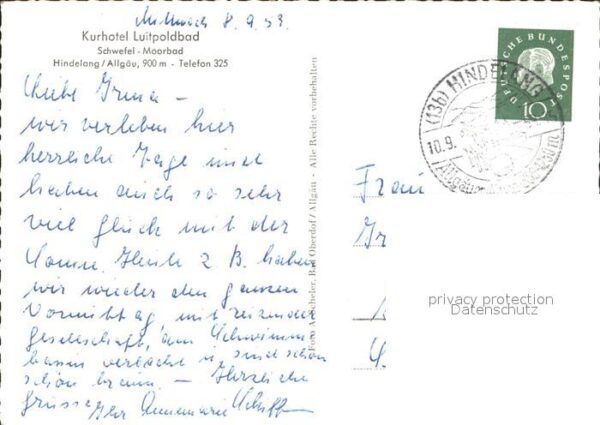 Mittwoch 8.9.59.
Kurhotel Luitpoldbad
Schwefel - Moorbad
Hindelang/Allgäu, 900 m - Telefon 325
Liebe Irma -
wir verleben hier
herrliche Tage und
haben auch so sehr
viel Glück mit der
Sonne. Heute z. B. haben
wir wieder den ganzen
Vormittag, mit reizender
Gesellschaft, am Schwimm-
bassin verbracht u. sind schon
schön braun. - Herzliche
Grüsse Ihr Annemarie
Alle Rechte vorbehalten
Bad Oberdorf/Allgäu
DEUTSCHE BUNDESPOST
10
(13b) HINDELANG
10.9.
Frau
privacy protection
Datenschutz